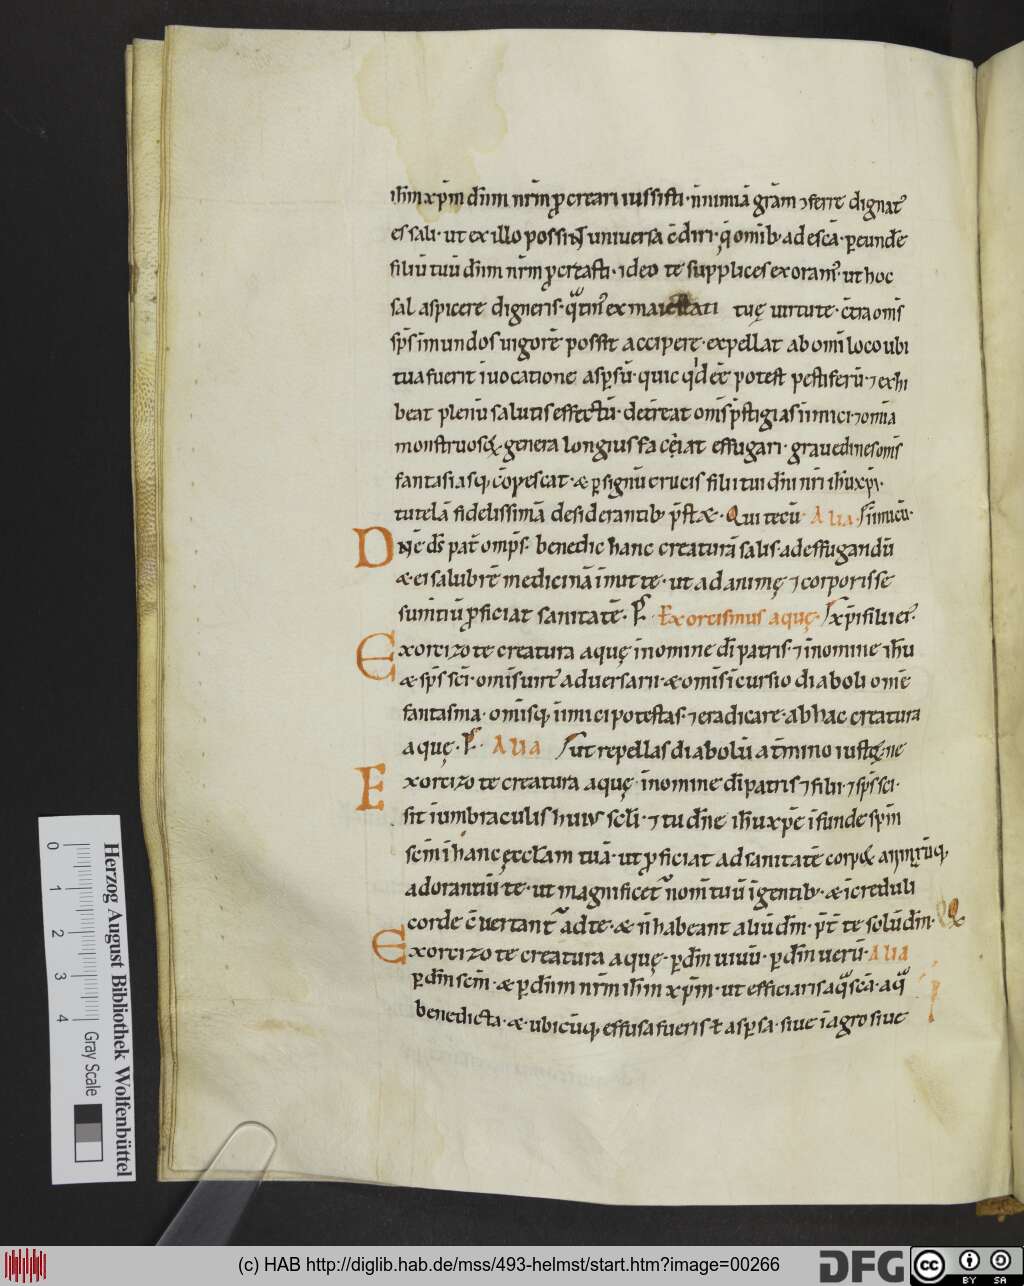 ih̅m xp̅m dn̅m nr̅m ꝓcreari iussisti · in nimiā grām ⁊ ferre dignat᷒
es sali · ut ex illo possint universa c̄diri · q̨ omīb · ad escā · ꝑ eundē
filiū tuū dn̅m nr̅m ꝓcreasti · ideo te supplices exoram᷒ · ut hoc
sal aspicere digneris · ex maiestati tuę virtute · c̄tra om̄s
sp̅s īmundos vigorē possit accipere · expellat ab om̄i loco ubi
tua fuerit īvocatione aspersū · potest pestiferū · ⁊ exhi
beat plenū salutis effectū · om̄s p̄stigias inimici ⁊ om̄ia
monstruosq; genera longius faciat effugari · gravedines om̄s
fantasiasq; c̄pescat · & ꝑ signū crucis filii tui dn̅i nr̅i ih̅u xp̅i ·
tutelā fidelissimā desiderantib p̄st& · Qui tecū · Alia · inimicū ·
Dn̅e ds̅ pat̄ omp̅s · benedic hanc creaturā salis · ad effugandū
& ei salubrē medicinā īmitte · ut ad animę ⁊ corporis se
sum̄tiū ꝓficiat sanitatē · P̄ · Exorcismus aquę · xp̅i filii ei᷒ ·
Exorcizo te creatura aquę in nomine di̅ patris · ⁊ in nomine ih̅u
& sp̅s sc̅i · om̄is virt᷒ adversarii · & om̄is īcursio diaboli om̄e
fantasma · om̄isq; inimici potestas · ⁊ eradicare · ab hac creatura
aquę · P̄ · Alia ut repellas diabolū a t̄mino iustoꝝ ne
Exorcizo te creatura aquę · in nomine di̅ patris ⁊ filii · ⁊ sp̅s sc̅i ·
sit ī umbraculis huius scl̅i · ⁊ tu dn̅e ih̅u xp̅e īfunde sp̅m
sc̅m ī hanc ęccl̅am tuā · ut ꝓficiat ad sanitatē
adorantiū te · ut magnificet᷒ nom̄ tuū ī gentib · & īcreduli
corde c̄vertant᷒ ad te · & n̄ habeant aliū dm̅ · p̄t̄ te solū dm̅ ·
Exorcizo te creatura aquę · ꝑ dm̅ vivū · ꝑ dm̅ verū · Alia
ꝑ dm̅ sc̅m · & ꝑ dn̅m nr̅m ih̅m xp̅m · ut efficiaris aq̄ sc̅a · aq̄
benedicta · & ubicūq; effusa fueris ł aspersa · sive ī agro sive
Herzog August Bibliothek Wolfenbüttel
0 1 2 3 4
Gray Scale
(c) HAB http://diglib.hab.de/mss/493-helmst/start.htm?image=00266
DFG
cc BY SA